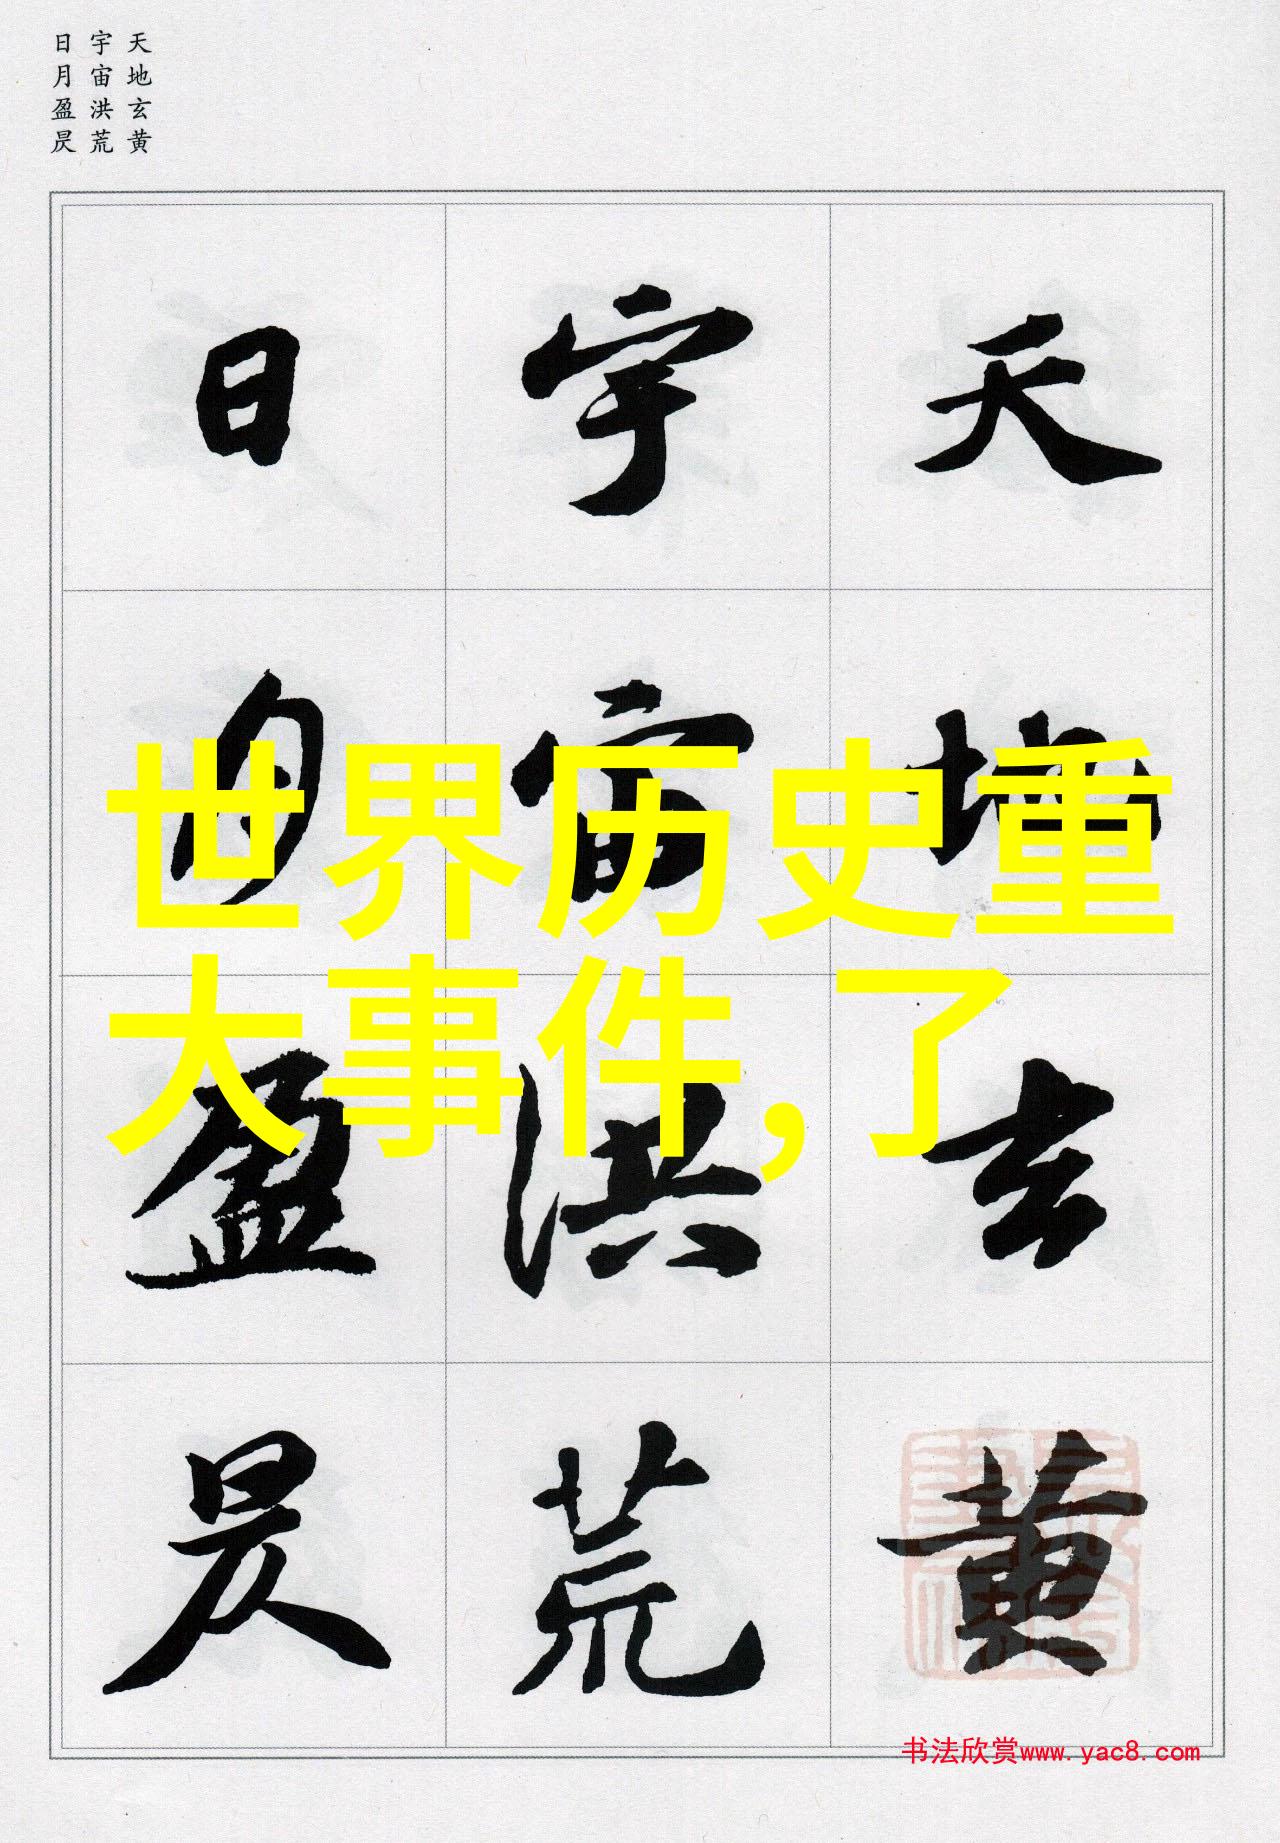 天地玄黄
宇宙洪荒
日月盈昃
天地玄黄
宇宙洪荒
日月盈昃
世界历史重
大事件,了
书法欣赏www.yac8.com